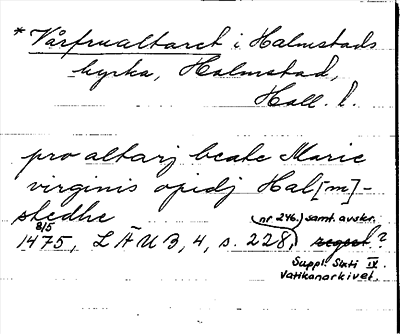 * Vårfrualtaret i Halmstads
kyrka, Halmstad,
Hall. l.
pro altarj beate Marie
virginis opidj Hal[m]-
stedhe
(nr 246.) samt. avskr.
8/5
1475, LÄUB, 4, s. 228, regest?
Suppl. Sixti IV.
Vatikanarkivet.